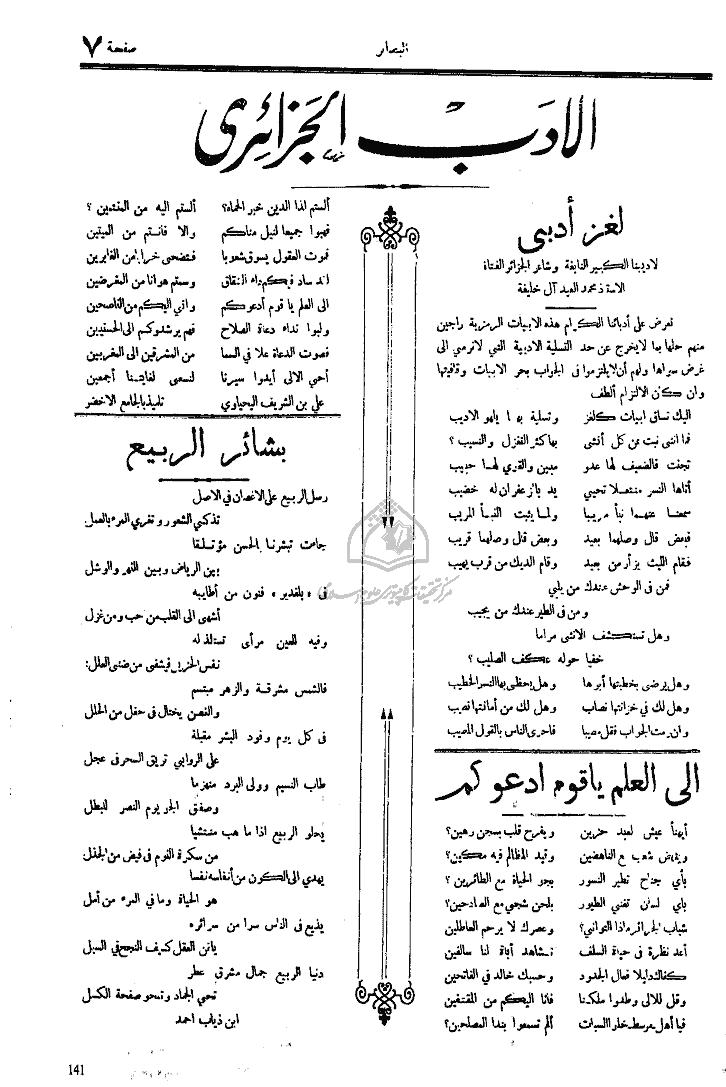 صفحة ٧
البصائر
الادب الجزائرى
لغز أدبى
لاديبنا الكبير النابغة وشاعر الجزائر الفتاة
الاستاذ محمد العيد آل خليفة
نعرض على أدبائنا الكرام هذه الابيات الرمزية راجين
منهم حلها بما لا يخرج عن حد التسلية الادبية التي لا نرمي الى
غرض سواها ولهم أن لا يلتزموا فى الجواب بحر الابيات وقافيتها
وان كان الالتزام ألطف
اليك نساق ابيات كلغز وتسلية بها يلهو الاديب
فما انثى نبت من كل أنثى بها كثر التغزل والنسيب ؟
تجنت فالضيف لها عدو مبين والقري لها حبيب
أتاها النسر منتصلا تحيي يد بالزعفران له خضيب
سمعنا عنهما نبأ مريبا ولما يثبت النبأ المريب
فبعض قال وصلهما بعيد وبعض قال وصلهما قريب
فقام الليث يزأر من بعد وقام الديك من قرب يهيب
فمن فى الوحش عندك من يلبي
ومن فى الطير عندك من يجيب
وهل تستكشف الانثى مراما
خفيا حوله عكف الصليب ؟
وهل يرضى بخطبتها أبوها وهل يحظى بها النسر الخطيب
وهل لك في خزانتها نصاب وهل لك من أمانتها نصيب
وان رمت الجواب فقل مصيبا فاحرى الناس بالقول المصيب
الى العلم ياقوم ادعوكم
أيهنأ عيش لعبد حزين ويفرح قلب بسجن رهين؟
وينهض شعب مع الناهضين وقيد المظالم فيه مكين؟
بأي جناح تطير النسور بجو الحياة مع الطائرين ؟
باي لسان تغني الطيور بلحن شجي مع الصادحين؟
شباب الجزائر ماذا التواني؟ وعصرك لا يرحم العاطلين
أعد نظرة فى حياة السلف تشاهد أباة لنا سالفين
كفاك دليلا فعال الجدود وحسبك خالد في الفاتحين
وقل للالى وطدوا ملكنا فانا اليكم من المقتفين
فيا أهل خلوا السبات ألم تسمعوا بندا المصلحين؟
ألستم لذا الدين خير الحماة؟ ألستم اليه من المنتمين ؟
فهبوا جميعا لنيل مناكم والا فانتم من الميتين
فموت العقول يسوق شعوبا فتضحى خرابا من الغابرين
لقد ساد فيكم داء النفاق وسمتم هوانا من المغرضين
الى العلم يا قوم أدعوكم واني اليكم من الناصحين
ولبوا نداء دعاة الصلاح فهم يرشدوكم الى الحسنيين
فصوت الدعاة علا في السما من المشرقين الى المغربين
أخي الالى أيدوا سيرنا لنسعى لغايتنا أجمعين
علي بن الشريف اليحياوي تلميذ بالجامع الاخضر
بشائر الربيع
رسل الربيع على الاغصان في الاصل
تذكي الشعور وتغري المرء بالعمل
جاءت تبشرنا بالحسن مؤتلقا
بين الرياض وبين النهر والوشل
فى « بلفدير » فنون من أطايبه
أشهى الى القلب من حب ومن غزل
وفيه للعين مرأى تستلذ له
نفس الحزين فيشفى من ضنى العلل؛
فالشمس مشرقة والزهر مبتسم
والغصن يختال فى حفل من الحلل
فى كل يوم وفود البشر مقبلة
على الروابي تريق السحر فى عجل
طاب النسيم وولى البرد منهزما
وصفق الجو يوم النصر للبطل
يحلو الربيع اذا ما هب منتشيا
من سكرة النوم فى فيض من الجذل؛
يهدي الى الكون من أنفاسه نفسا
هو الحياة وما في المرء من أمل
يذيع فى الناس سرا من سرائره
يأتن العقل كيف النجح في السبل
دنيا الربيع جمال مشرق عطر
تحي الجماد وتمحو صفحة الكسل
ابن ذياب احمد
141